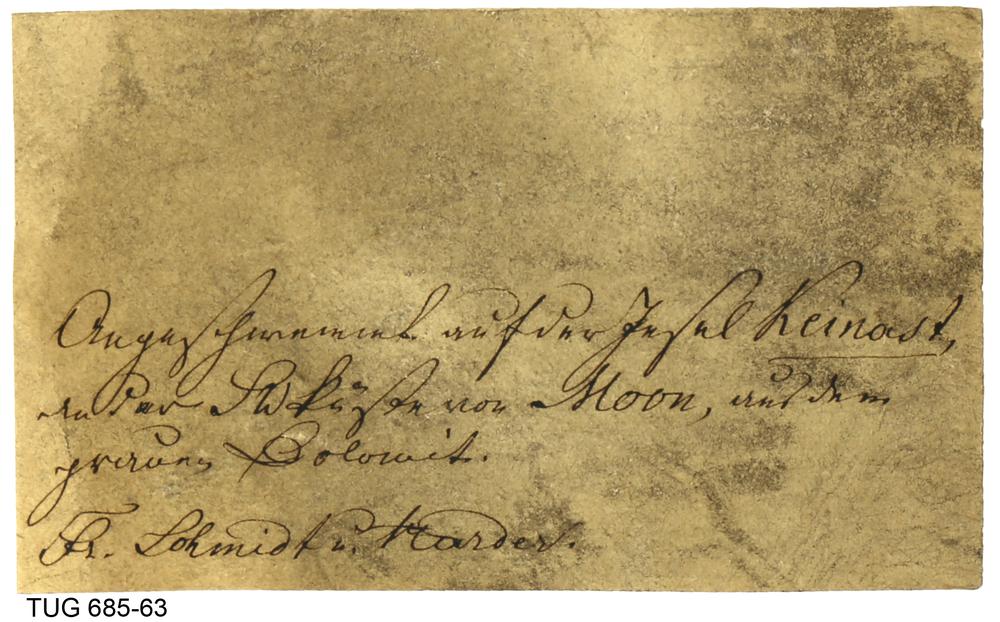 Angeschwemmt auf der Insel Keinast,
an der Südküste von Moon, aus dem
grauen Dolomit.
Fr. Schmidt u. Harder.
TUG 685-63